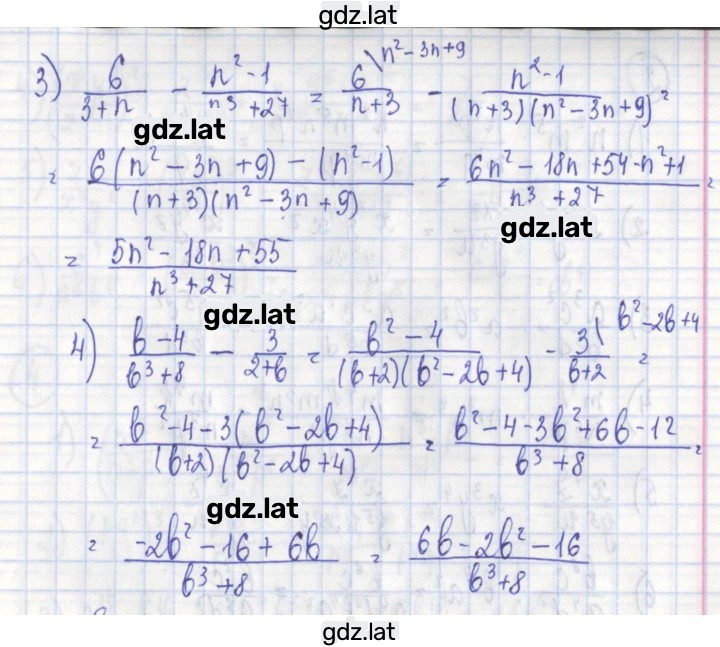 gdz.lat
3) 6/(3+n) - (n²-1)/(n³+27) = 6\n²-3n+9/(n+3) - (n²-1)/((n+3)(n²-3n+9)) =
gdz.lat
= (6(n²-3n+9)-(n²-1))/((n+3)(n²-3n+9)) = (6n²-18n+54-n²+1)/(n³+27) =
gdz.lat
= (5n²-18n+55)/(n³+27)
gdz.lat
4) (b-4)/(b³+8) - 3/(2+b) = (b²-4)/((b+2)(b²-2b+4)) - 3\b²-2b+4/(b+2) =
= (b²-4-3(b²-2b+4))/((b+2)(b²-2b+4)) = (b²-4-3b²+6b-12)/(b³+8) =
gdz.lat
= (-2b²-16+6b)/(b³+8) = (6b-2b²-16)/(b³+8)
gdz.lat